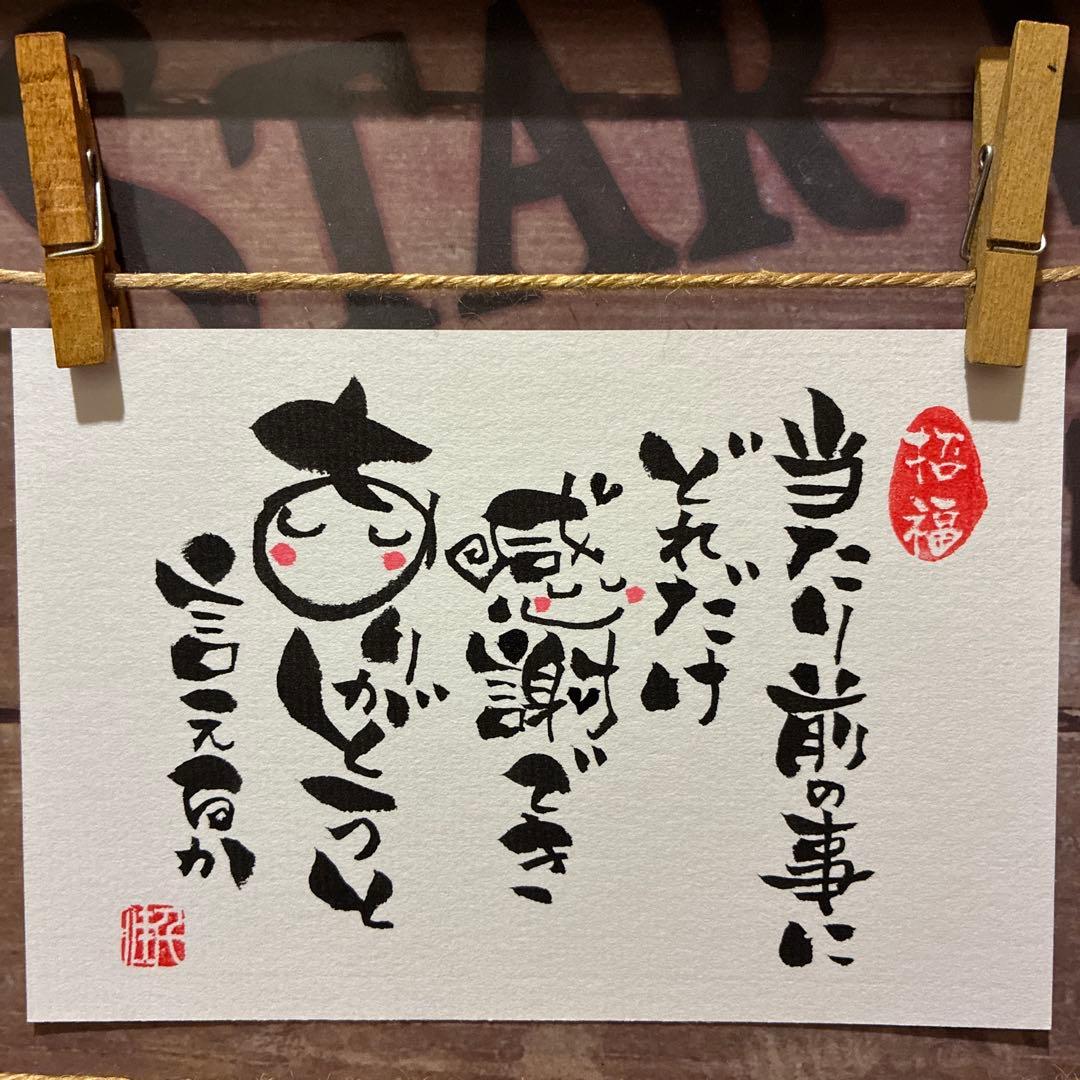 招福
当たり前の事に
どれだけ
感謝でき
ありがとうと
言えるか
STAR